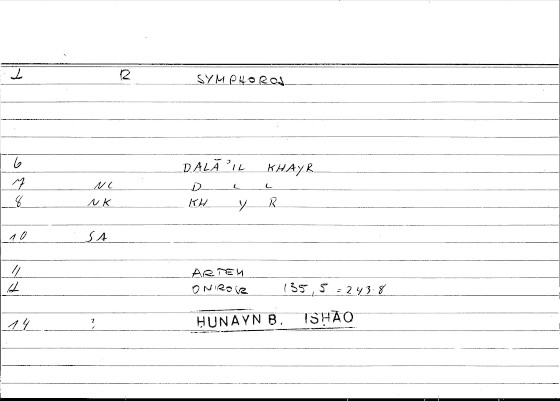 1 R SYMPHOROS
6 DALĀ'IL KHAYR
7 NC D L L
8 NK KH Y R
10 SA
11 ARTEM
12 ONIROCR 135,5 = 243.8
14 : HUNAYN B. ISHĀQ